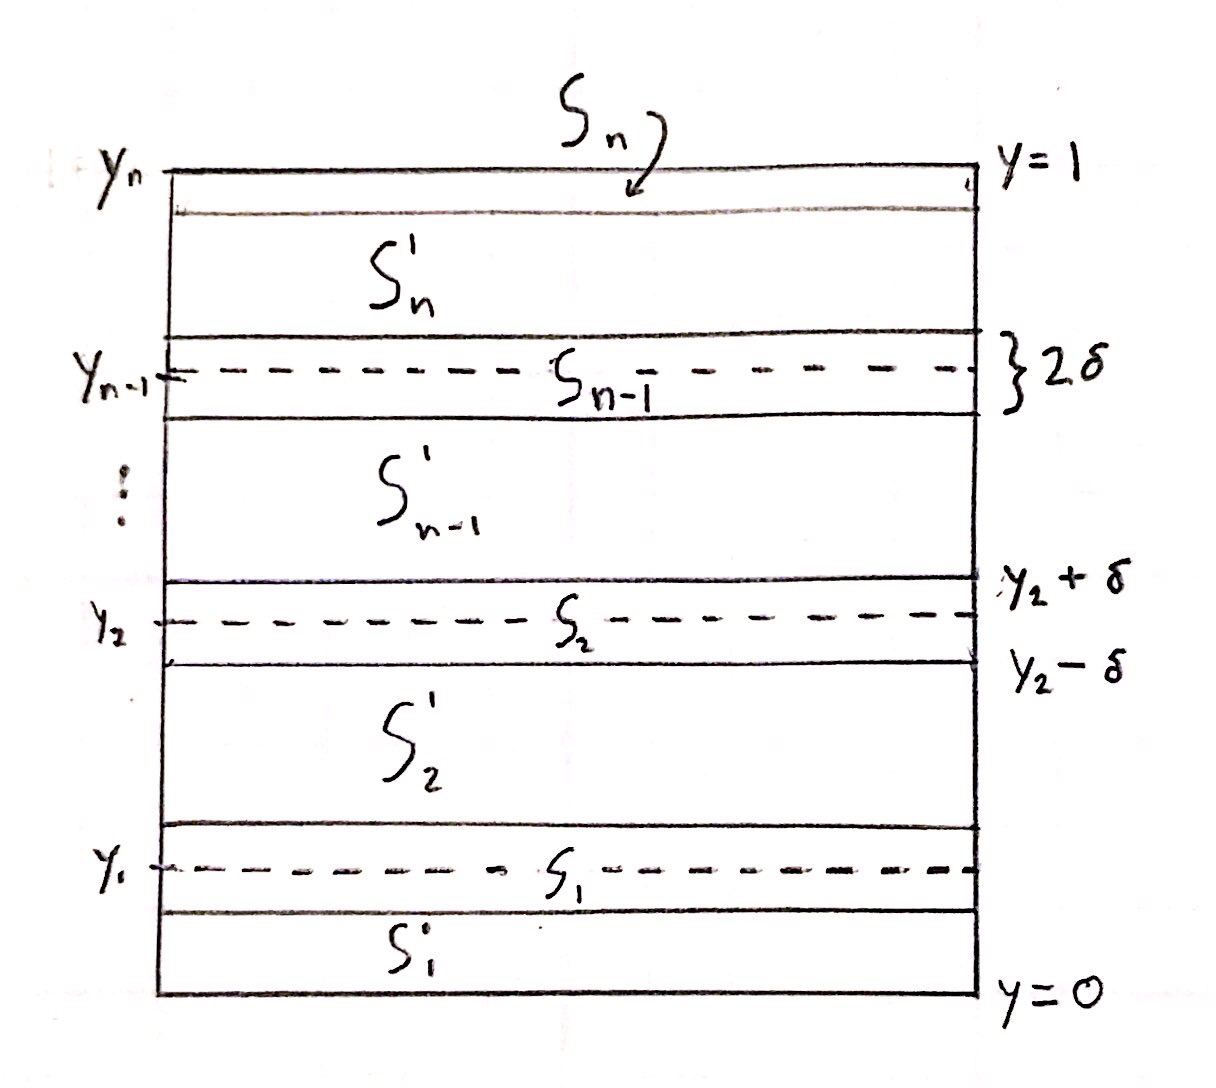 Sₙ
yₙ y=1
S'ₙ
yₙ₋₁ Sₙ₋₁ }2δ
⋮ S'ₙ₋₁
y₂+δ
y₂ S₂
y₂-δ
S'₂
y₁ S₁
S'₁
y=0